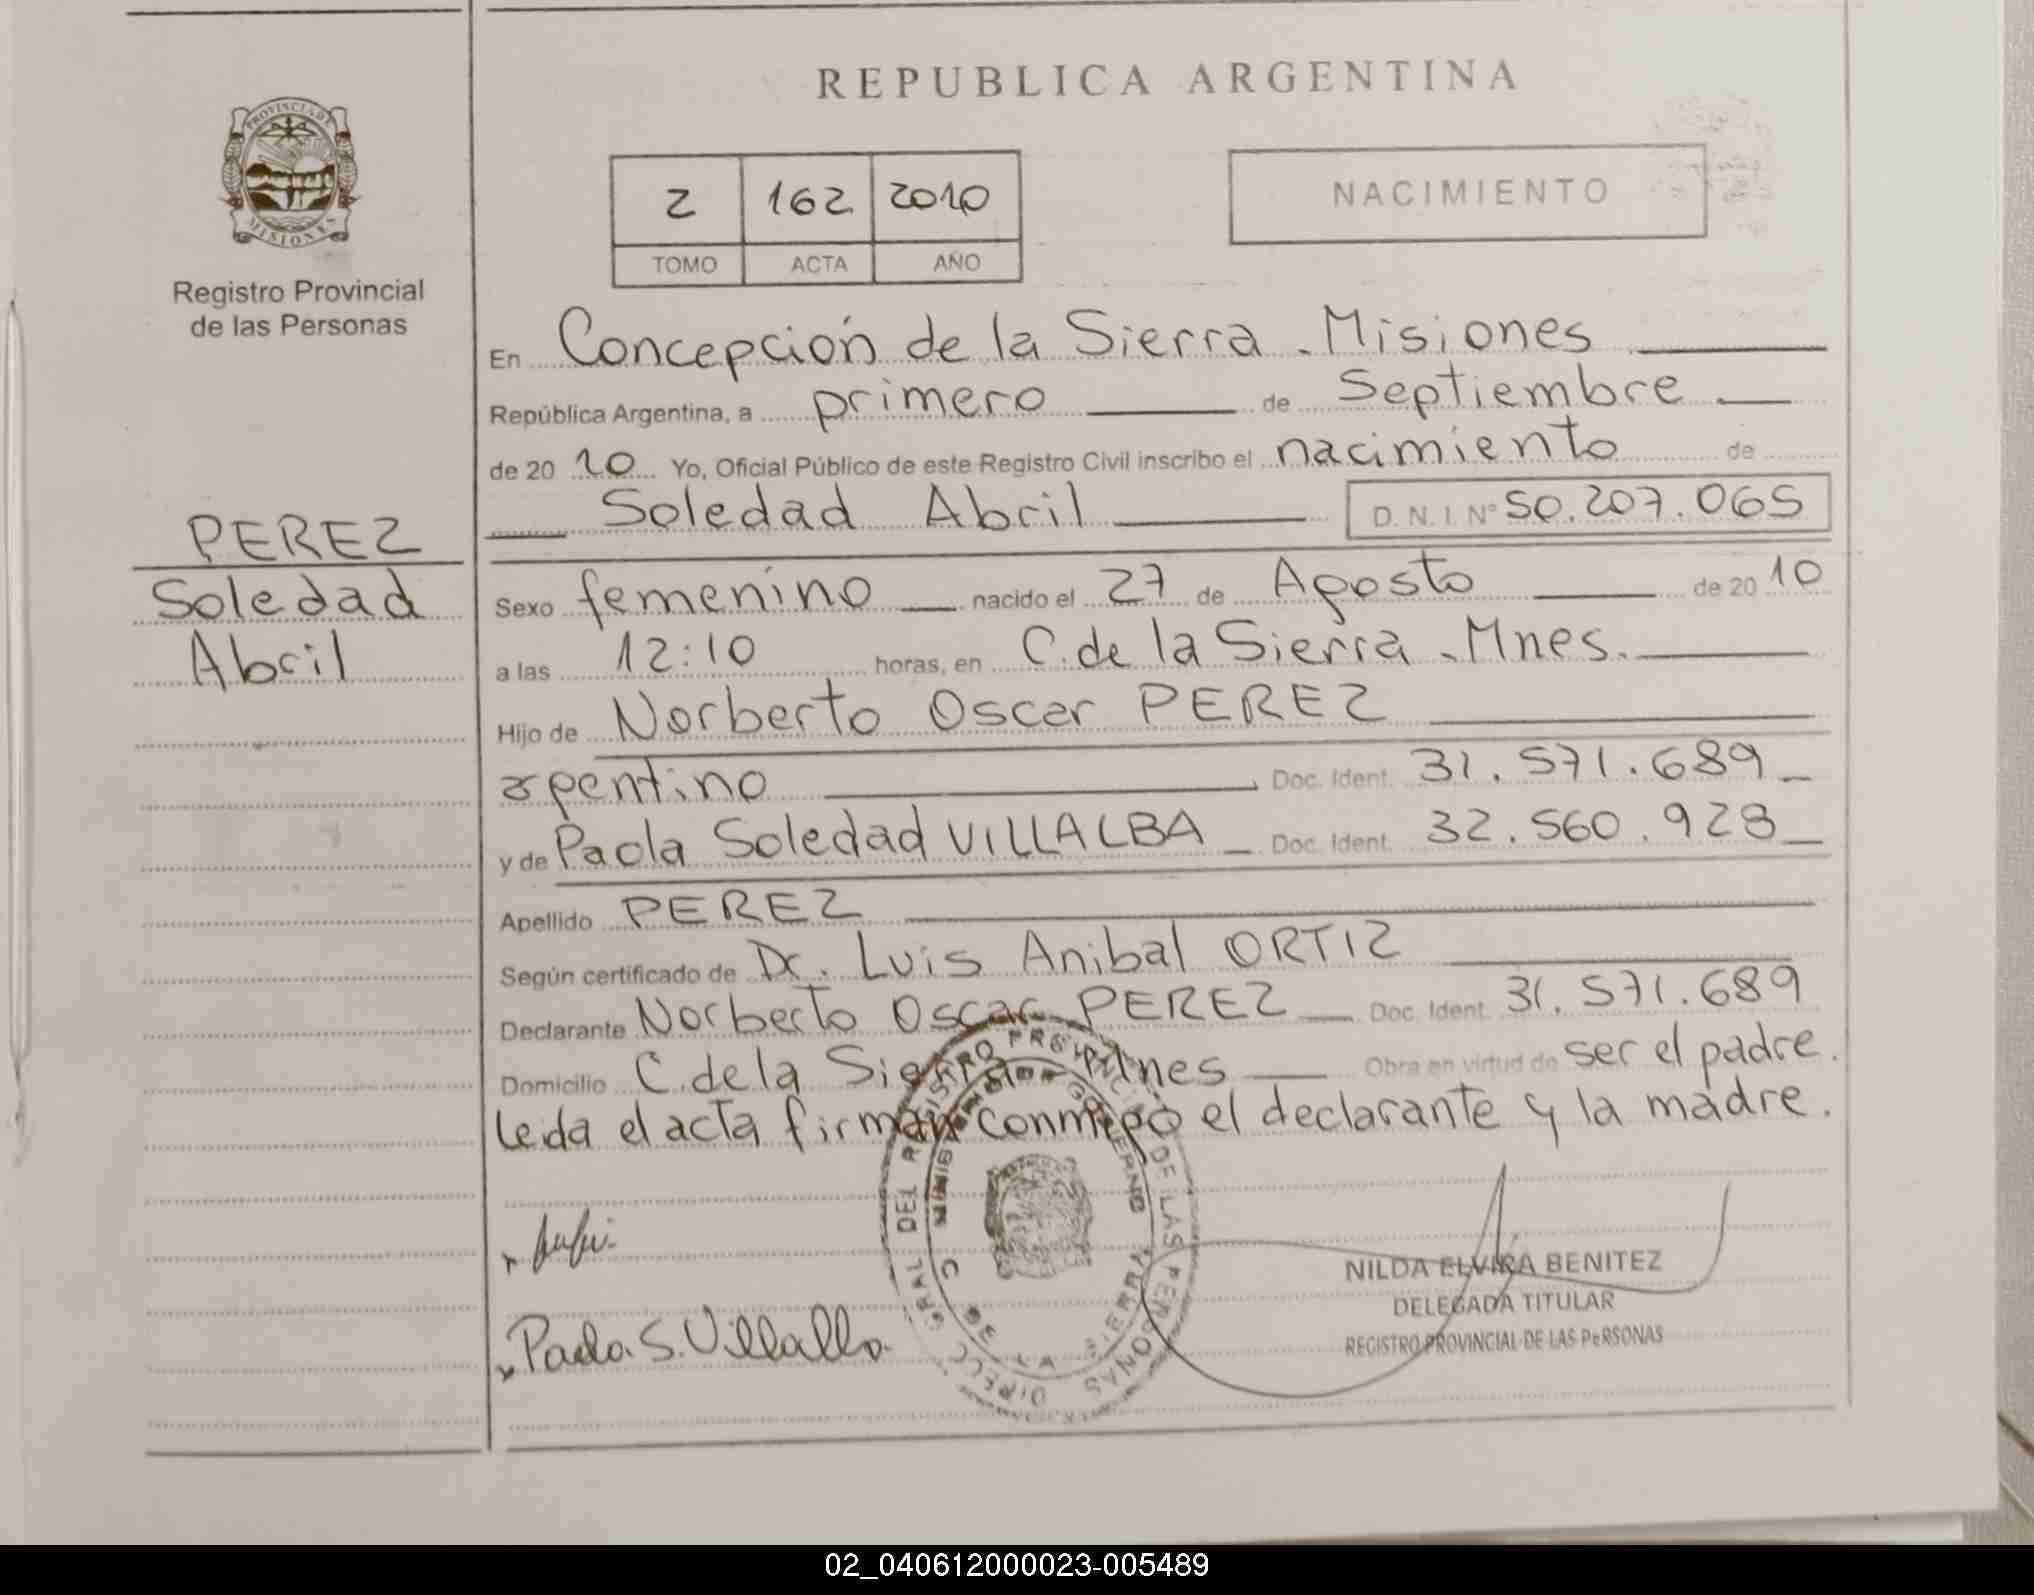 REPUBLICA ARGENTINA
PROVINCIA DE
MISIONES
Registro Provincial
de las Personas
2 162 2010
TOMO ACTA AÑO
NACIMIENTO
PEREZ
Soledad
Abril
En Concepción de la Sierra - Misiones
República Argentina, a primero de Septiembre
de 20 10 Yo, Oficial Público de este Registro Civil inscribo el nacimiento de
Soledad Abril D.N.I. Nº 50.207.065
Sexo femenino nacido el 27 de Agosto de 20 10
a las 12:10 horas, en C. de la Sierra - Mnes.
Hijo de Norberto Oscar PEREZ
argentino Doc. Ident. 31.571.689
y de Paola Soledad VILLALBA Doc. Ident. 32.560.928
Apellido PEREZ
Según certificado de Dr. Luis Anibal ORTIZ
Declarante Norberto Oscar PEREZ Doc. Ident. 31.571.689
Domicilio C. de la Sierra - Mnes Obra en virtud de ser el padre.
Leida el acta firman conmigo el declarante y la madre.
Paola S. Villalba
NILDA ELVIRA BENITEZ
DELEGADA TITULAR
REGISTRO PROVINCIAL DE LAS PERSONAS
02_040612000023-005489